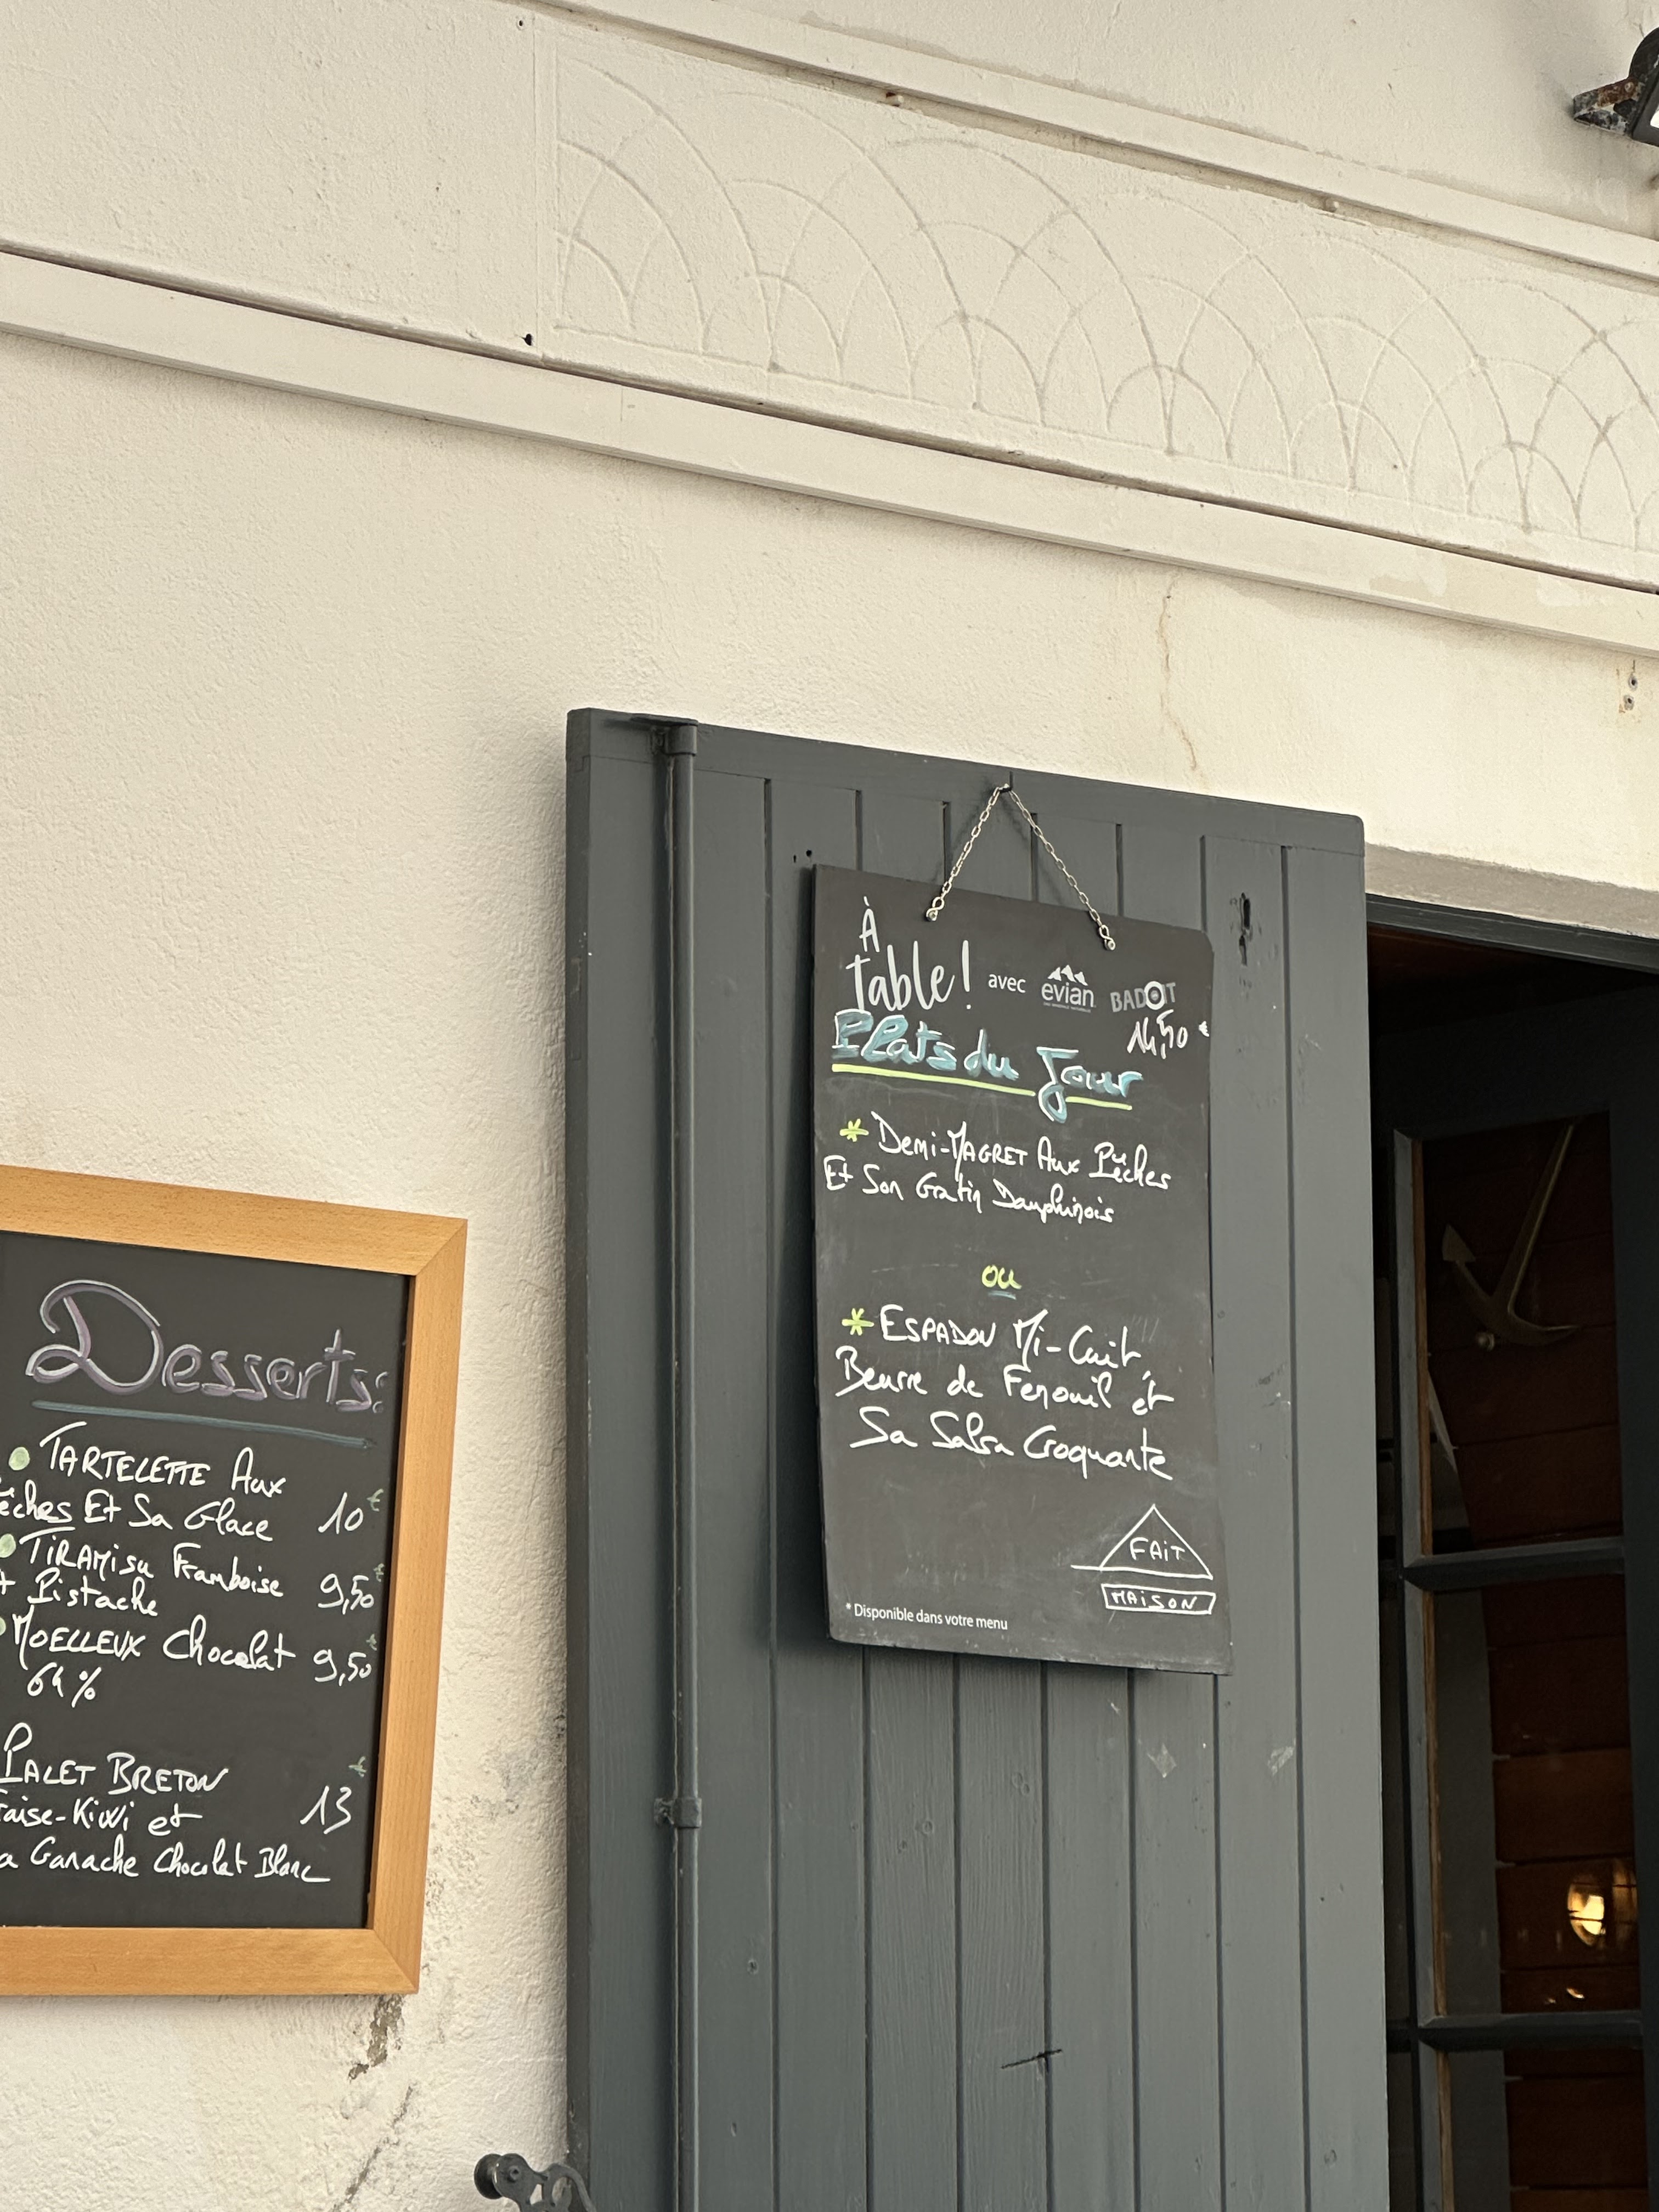 À
table! avec evian BADOIT
14,50 €
Plats du Jour
* Demi-MAGRET Aux Pêches
Et Son Gratin Dauphinois
ou
* ESPADON Mi-Cuit,
Beurre de Fenouil et
Sa Salsa Croquante
FAiT
MAiSON
* Disponible dans votre menu
Desserts:
TARTELETTE Aux
êches Et Sa Glace 10€
TiRAMisu Framboise
+ Pistache 9,50€
MOELLEUX Chocolat 9,50€
64%
PALET BRETON
raise-Kiwi et 13€
a Ganache Chocolat Blanc